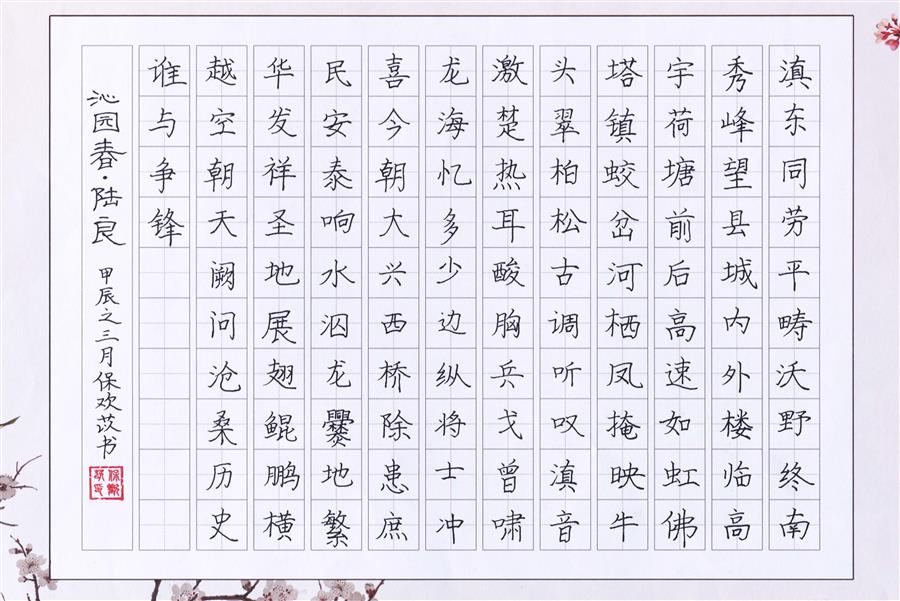 滇东同劳平畴沃野终南
秀峰望县城内外楼临高
宇荷塘前后高速如虹佛
塔镇蛟岔河栖凤掩映牛
头翠柏松古调听叹滇音
激楚热耳酸胸兵戈曾啸
龙海忆多少边纵将士冲
喜今朝大兴西桥除患庶
民安泰响水泅龙爨地繁
华发祥圣地展翅鲲鹏横
越空朝天阙问沧桑历史
谁与争锋
沁园春·陆良 甲辰之三月保欢苡书